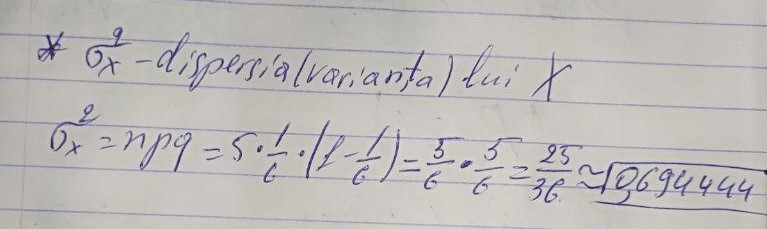 * σ²ₓ - dispersia (varianța) lui X
σ²ₓ = npq = 5·1/6·(1-1/6) = 5/6·5/6 = 25/36 ≈ 0,694444